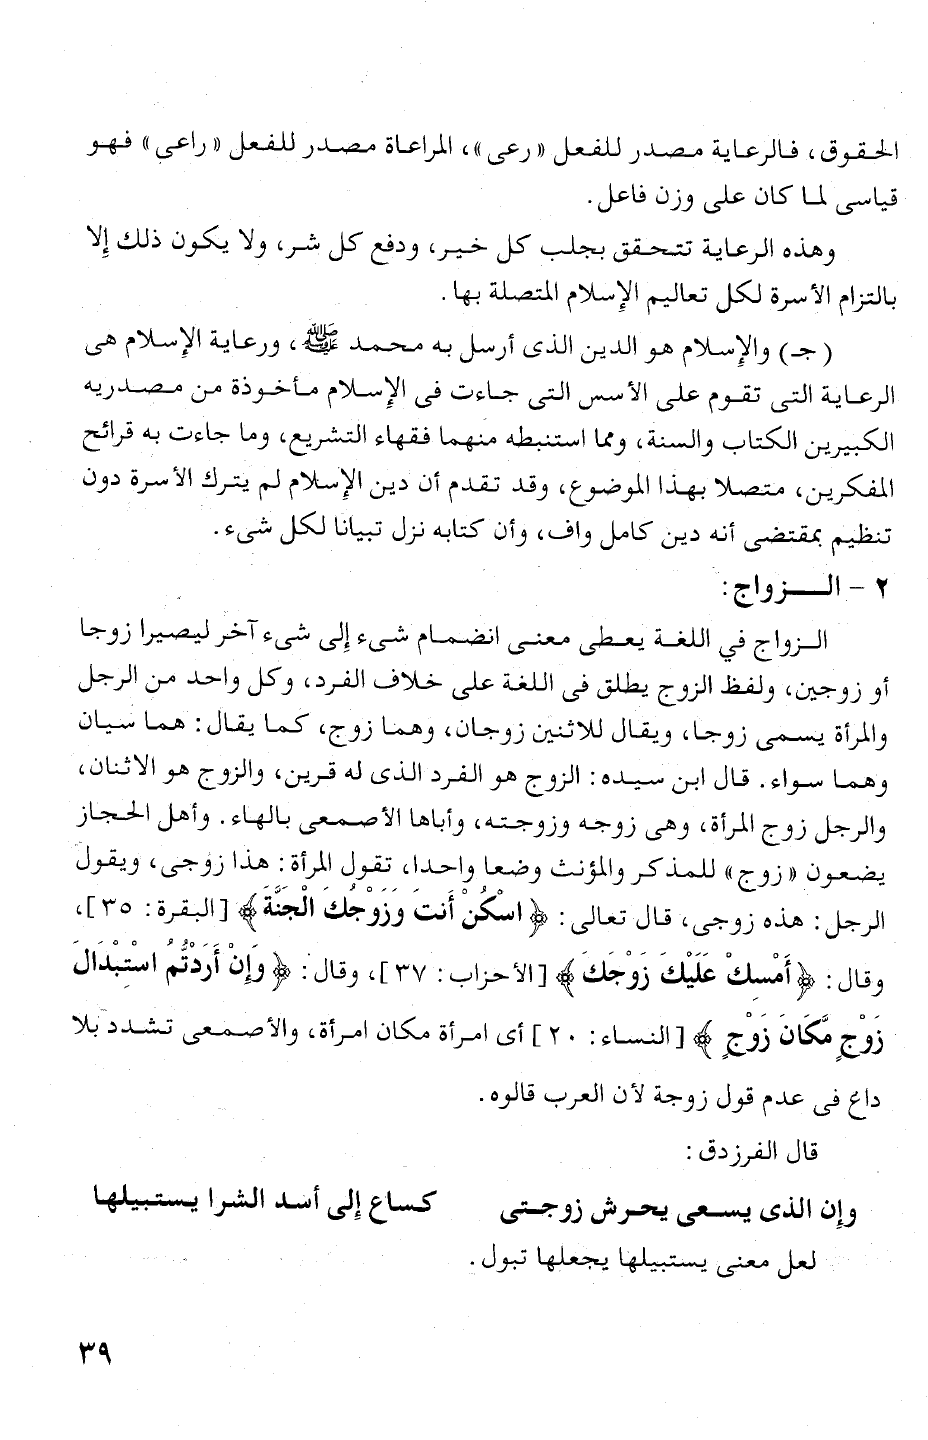 الحقوق، فالرعاية مصدر للفعل «رعى»، المراعاة مصدر للفعل «راعى» فهو
قياسى لما كان على وزن فاعل.
وهذه الرعاية تتحقق بجلب كل خير، ودفع كل شر، ولا يكون ذلك إلا
بالتزام الأسرة لكل تعاليم الإسلام المتصلة بها.
(جـ) والإسلام هو الدين الذى أرسل به محمد ﷺ، ورعاية الإسلام هى
الرعاية التى تقوم على الأسس التى جاءت فى الإسلام مأخوذة من مصدريه
الكبيرين الكتاب والسنة، ومما استنبطه منهما فقهاء التشريع، وما جاءت به قرائح
المفكرين، متصلا بهذا الموضوع، وقد تقدم أن دين الإسلام لم يترك الأسرة دون
تنظيم بمقتضى أنه دين كامل واف، وأن كتابه نزل تبيانا لكل شىء.
٢ - الـــزواج:
الزواج في اللغة يعطى معنى انضمام شىء إلى شىء آخر ليصيرا زوجا
أو زوجين، ولفظ الزوج يطلق فى اللغة على خلاف الفرد، وكل واحد من الرجل
والمرأة يسمى زوجا، ويقال للاثنين زوجان، وهما زوج، كما يقال: هما سيان
وهما سواء. قال ابن سيده: الزوج هو الفرد الذى له قرين، والزوج هو الاثنان،
والرجل زوج المرأة، وهى زوجه وزوجته، وأباها الأصمعى بالهاء. وأهل الحجاز
يضعون «زوج» للمذكر والمؤنث وضعا واحدا، تقول المرأة: هذا زوجى، ويقول
الرجل: هذه زوجى، قال تعالى: ﴿اسْكُنْ أَنتَ وَزَوْجُكَ الْجَنَّةَ﴾ [البقرة: ٣٥]،
وقال: ﴿أَمْسِكْ عَلَيْكَ زَوْجَكَ﴾ [الأحزاب: ٣٧]، وقال: ﴿وَإِنْ أَرَدتُّمُ اسْتِبْدَالَ
زَوْجٍ مَّكَانَ زَوْجٍ﴾ [النساء: ٢٠] أى امرأة مكان امرأة، والأصمعى تشدد بلا
داع فى عدم قول زوجة لأن العرب قالوه.
قال الفرزدق:
وإن الذى يسعى يحرش زوجتى كساع إلى أسد الشرا يستبيلها
لعل معنى يستبيلها يجعلها تبول.
٣٩